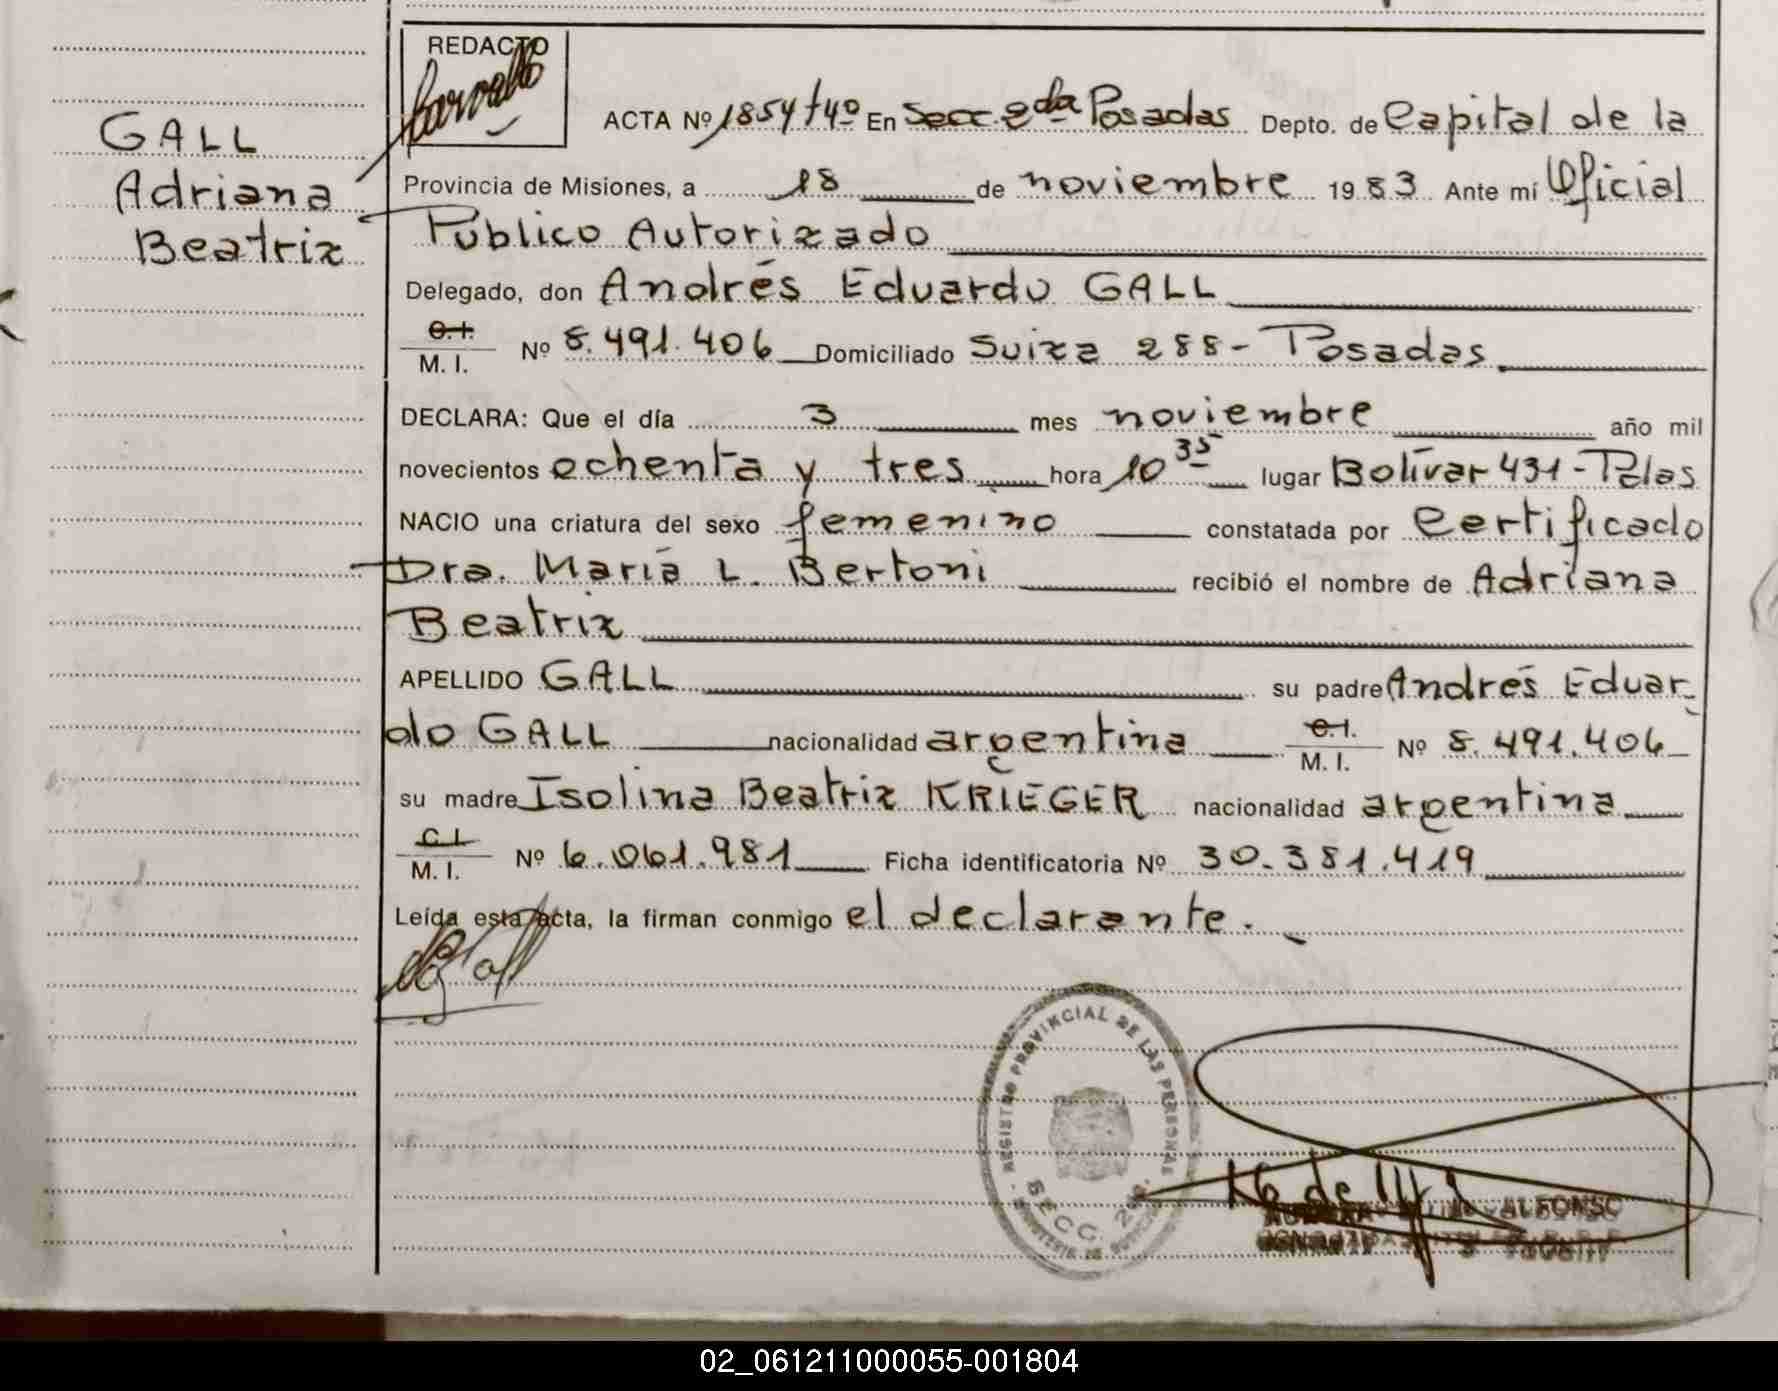 REDACTO
GALL
Adriana
Beatriz
ACTA Nº 1854/4º En Secc. 2da Posadas Depto. de Capital de la
Provincia de Misiones, a 18 de noviembre 1983 Ante mí Oficial
Público Autorizado
Delegado, don Andrés Eduardo GALL
C.I.
M. I. Nº 8.491.406 Domiciliado Suiza 288 - Posadas
DECLARA: Que el día 3 mes noviembre año mil
novecientos ochenta y tres hora 10 35 lugar Bolívar 431 - Pdas
NACIO una criatura del sexo femenino constatada por Certificado
Dra. María L. Bertoni recibió el nombre de Adriana
Beatriz
APELLIDO GALL su padre Andrés Eduar-
do GALL nacionalidad argentina C.I.
M. I. Nº 8.491.406
su madre Isolina Beatriz KRIEGER nacionalidad argentina
C.I.
M. I. Nº 6.061.981 Ficha identificatoria Nº 30.381.419
Leída esta acta, la firman conmigo el declarante.
REGISTRO PROVINCIAL DE LAS PERSONAS
SECC. 2da.
ALFONSO
02_061211000055-001804